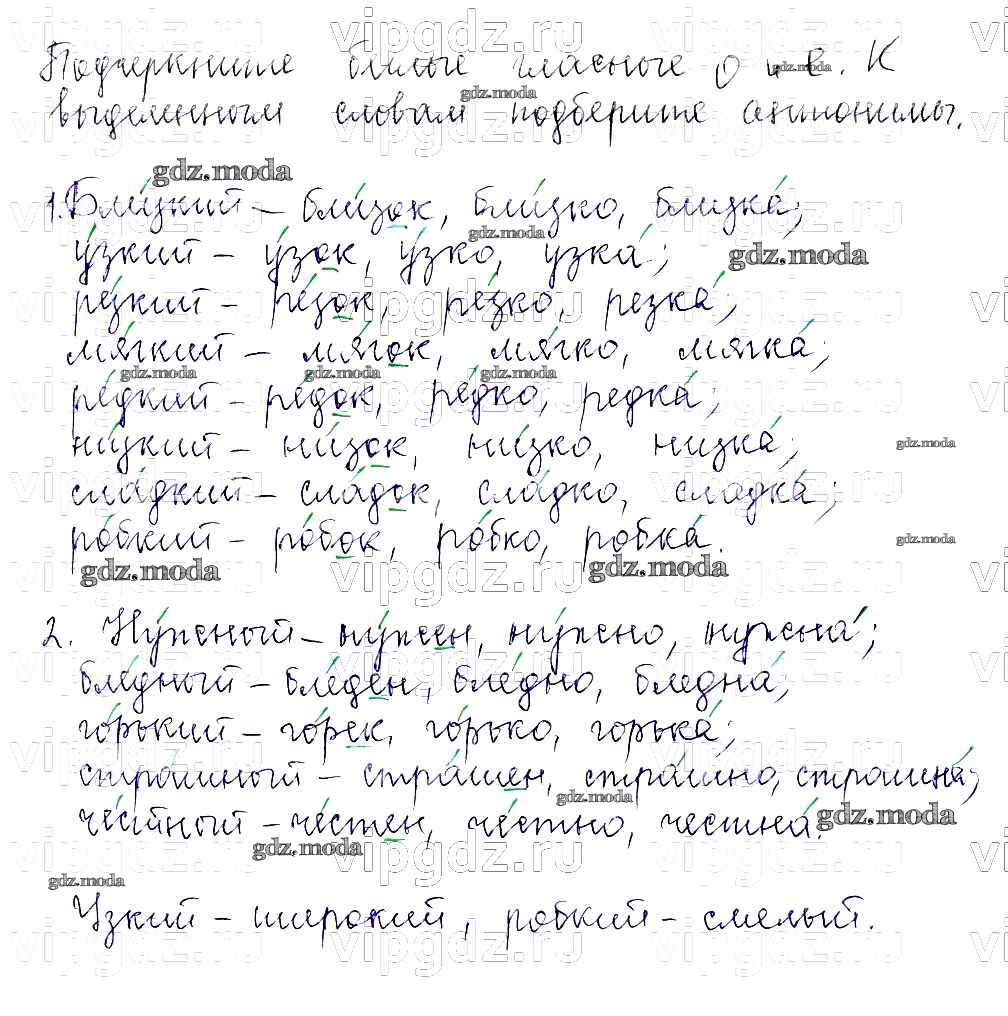 Подчеркните беглые гласные о и е. К
выделенным словам подберите антонимы.
1. Бли́зкий – бли́зок, бли́зко, близка́;
у́зкий – у́зок, у́зко, узка́;
ре́зкий – ре́зок, ре́зко, резка́;
мя́гкий – мя́гок, мя́гко, мягка́;
ре́дкий – ре́док, ре́дко, редка́;
ни́зкий – ни́зок, ни́зко, низка́;
сла́дкий – сла́док, сла́дко, сладка́;
ро́бкий – ро́бок, ро́бко, робка́.
2. Ну́жный – ну́жен, ну́жно, нужна́;
бле́дный – бле́ден, бле́дно, бледна́;
го́рький – го́рек, го́рько, горька́;
стра́шный – стра́шен, стра́шно, страшна́;
че́стный – че́стен, че́стно, честна́.
Узкий – широкий, робкий – смелый.